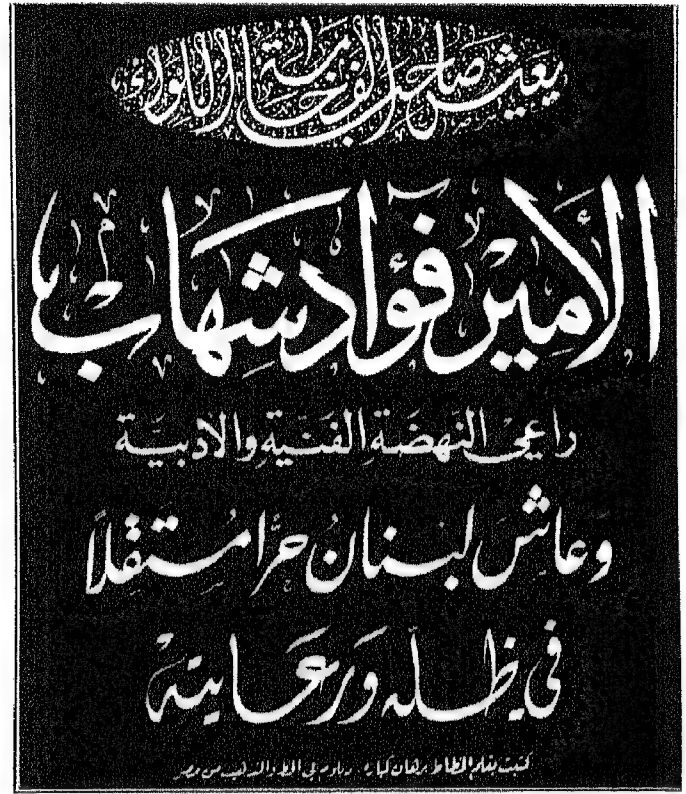 يعيش صاحب الفخامة اللواء
الأمير فؤاد شهاب
راعي النهضة الفنية والأدبية
وعاش لبنان حراً مستقلاً
في ظله ورعايته
كتبت بقلم الخطاط برهان كبارة دبلوم في الخط والتذهيب من مصر